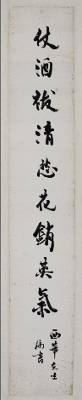 仗酒祓清愁花銷英氣
西華先生